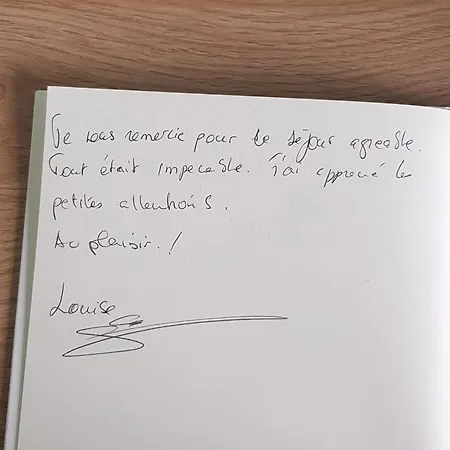 Je vous remercie pour ce séjour agréable.
Tout était impecable. J'ai apprecié les
petites attentions.
Au plaisir. !
Louise